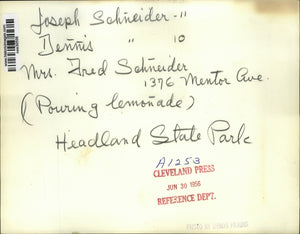 Joseph Schneider - 11
Dennis " 10
Mrs. Fred Schneider
1376 Mentor Ave.
(Pouring lemonade)
Headland State Park
A1253
CLEVELAND PRESS
JUN 30 1956
REFERENCE DEPT.